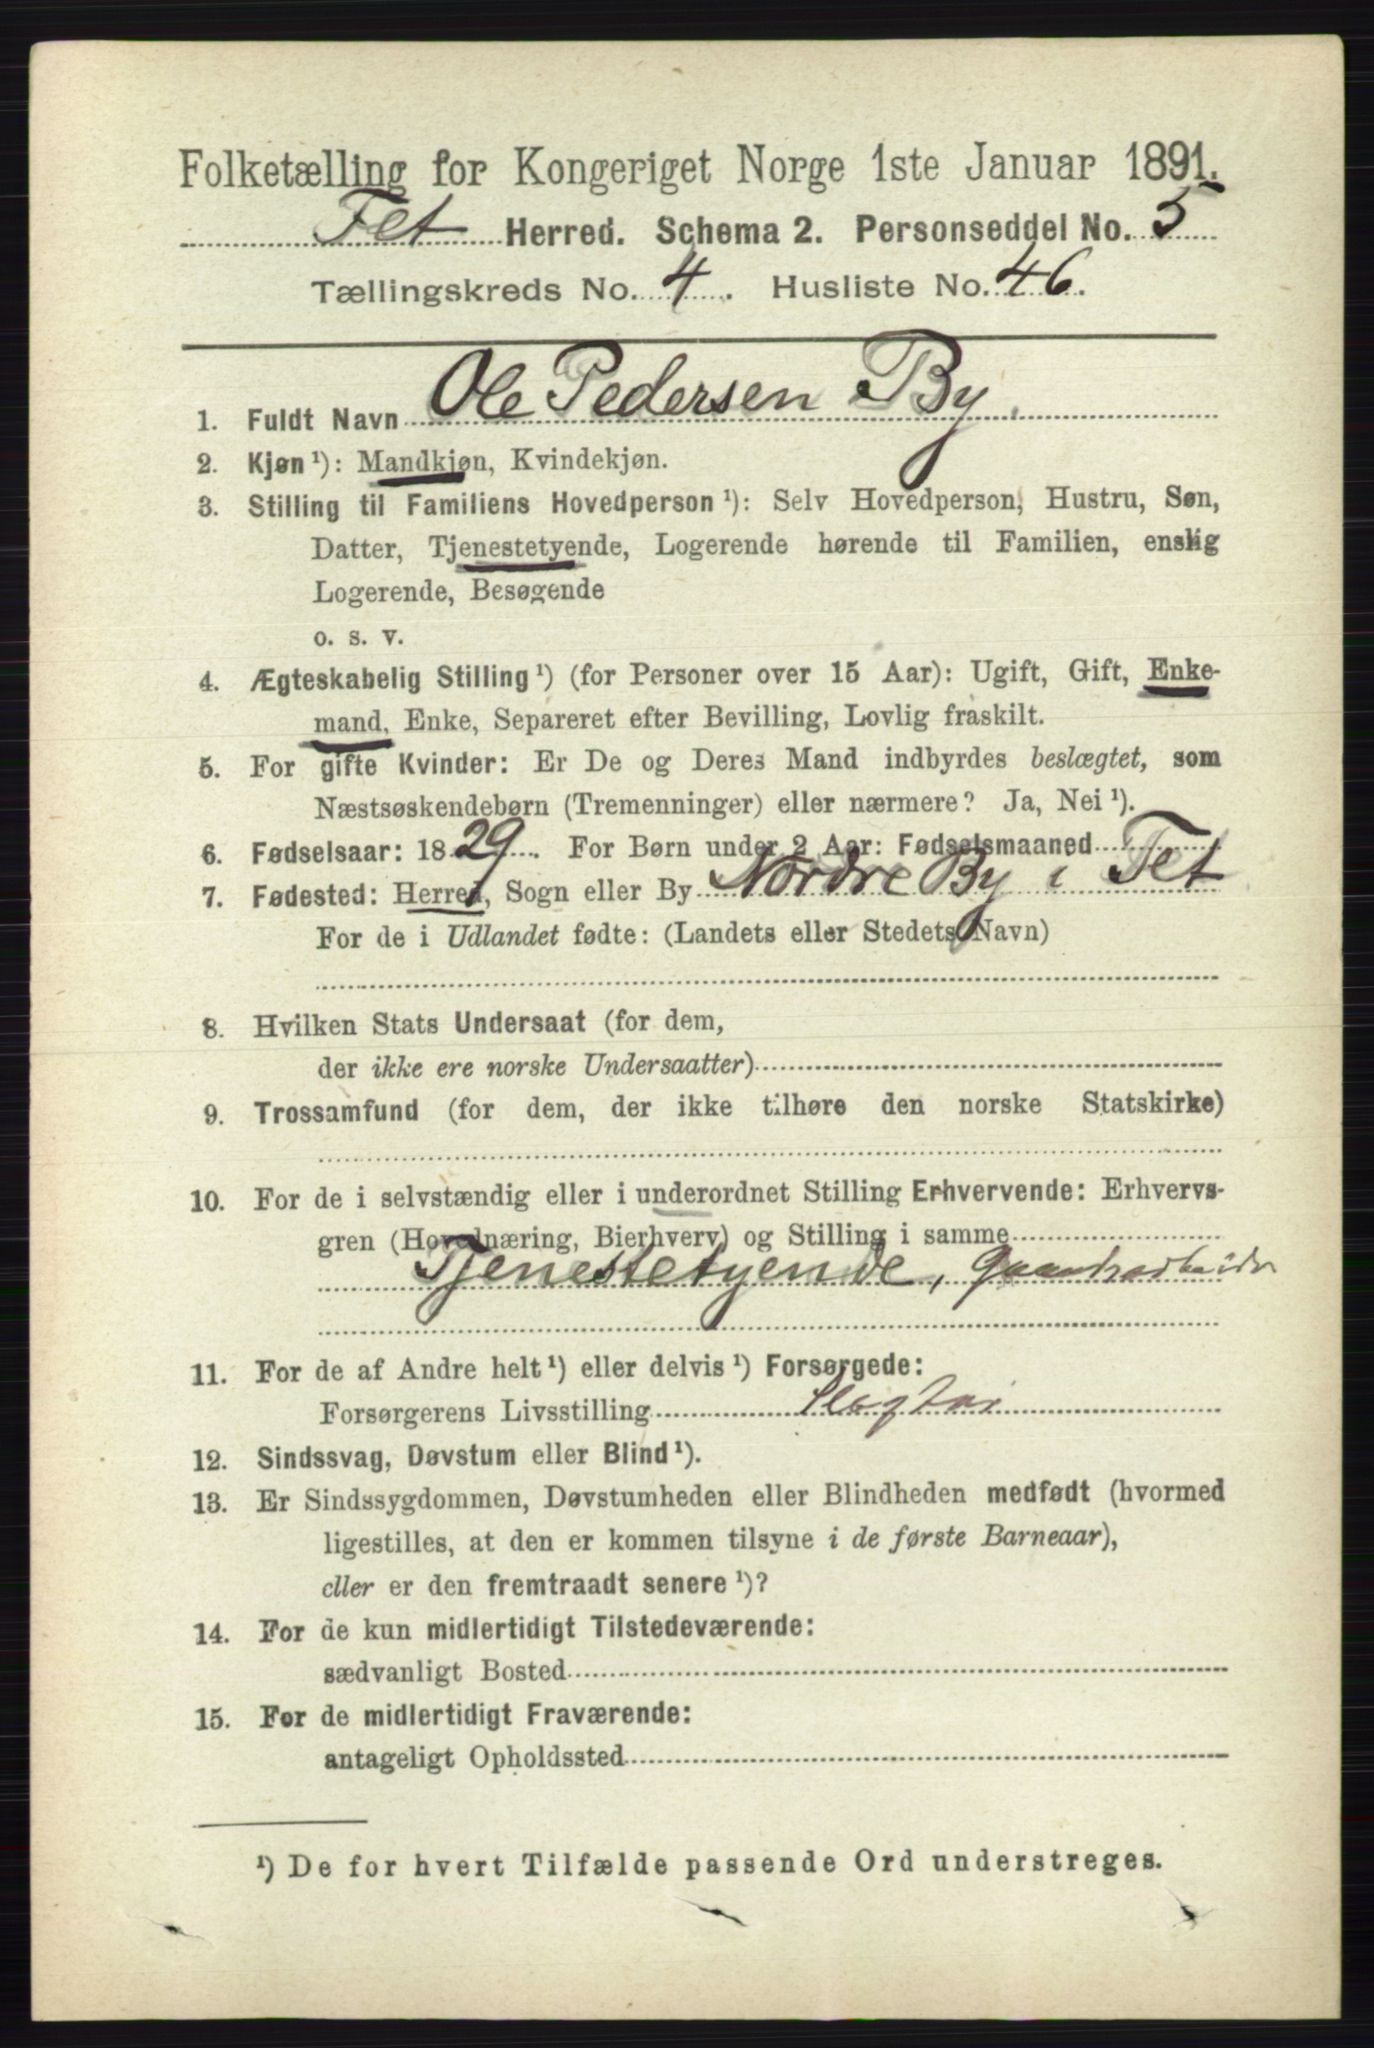 Folketælling for Kongeriget Norge 1ste Januar 1891.
Fet Herred. Schema 2. Personseddel No. 5
Tællingskreds No. 4. Husliste No. 46.
1. Fuldt Navn Ole Pedersen By.
2. Kjøn¹): Mandkjøn, Kvindekjøn.
3. Stilling til Familiens Hovedperson¹): Selv Hovedperson, Hustru, Søn,
Datter, Tjenestetyende, Logerende hørende til Familien, enslig
Logerende, Besøgende
o. s. v.
4. Ægteskabelig Stilling¹) (for Personer over 15 Aar): Ugift, Gift, Enke-
mand, Enke, Separeret efter Bevilling, Lovlig fraskilt.
5. For gifte Kvinder: Er De og Deres Mand indbyrdes beslægtet, som
Næstsøskendebørn (Tremenninger) eller nærmere? Ja, Nei¹).
6. Fødselsaar: 1829. For Børn under 2 Aar: Fødselsmaaned
7. Fødested: Herred, Sogn eller By Nordre By i Fet
For de i Udlandet fødte: (Landets eller Stedets Navn)
8. Hvilken Stats Undersaat (for dem,
der ikke ere norske Undersaatter)
9. Trossamfund (for dem, der ikke tilhøre den norske Statskirke)
10. For de i selvstændig eller i underordnet Stilling Erhvervende: Erhvervs-
gren (Hovednæring, Bierhverv) og Stilling i samme
Tjenestetyende, Gaardsarbeider
11. For de af Andre helt¹) eller delvis¹) Forsørgede:
Forsørgerens Livsstilling
12. Sindssvag, Døvstum eller Blind¹).
13. Er Sindssygdommen, Døvstumheden eller Blindheden medfødt (hvormed
ligestilles, at den er kommen tilsyne i de første Barneaar),
eller er den fremtraadt senere¹)?
14. For de kun midlertidigt Tilstedeværende:
sædvanligt Bosted
15. For de midlertidigt Fraværende:
antageligt Opholdssted
¹) De for hvert Tilfælde passende Ord understreges.